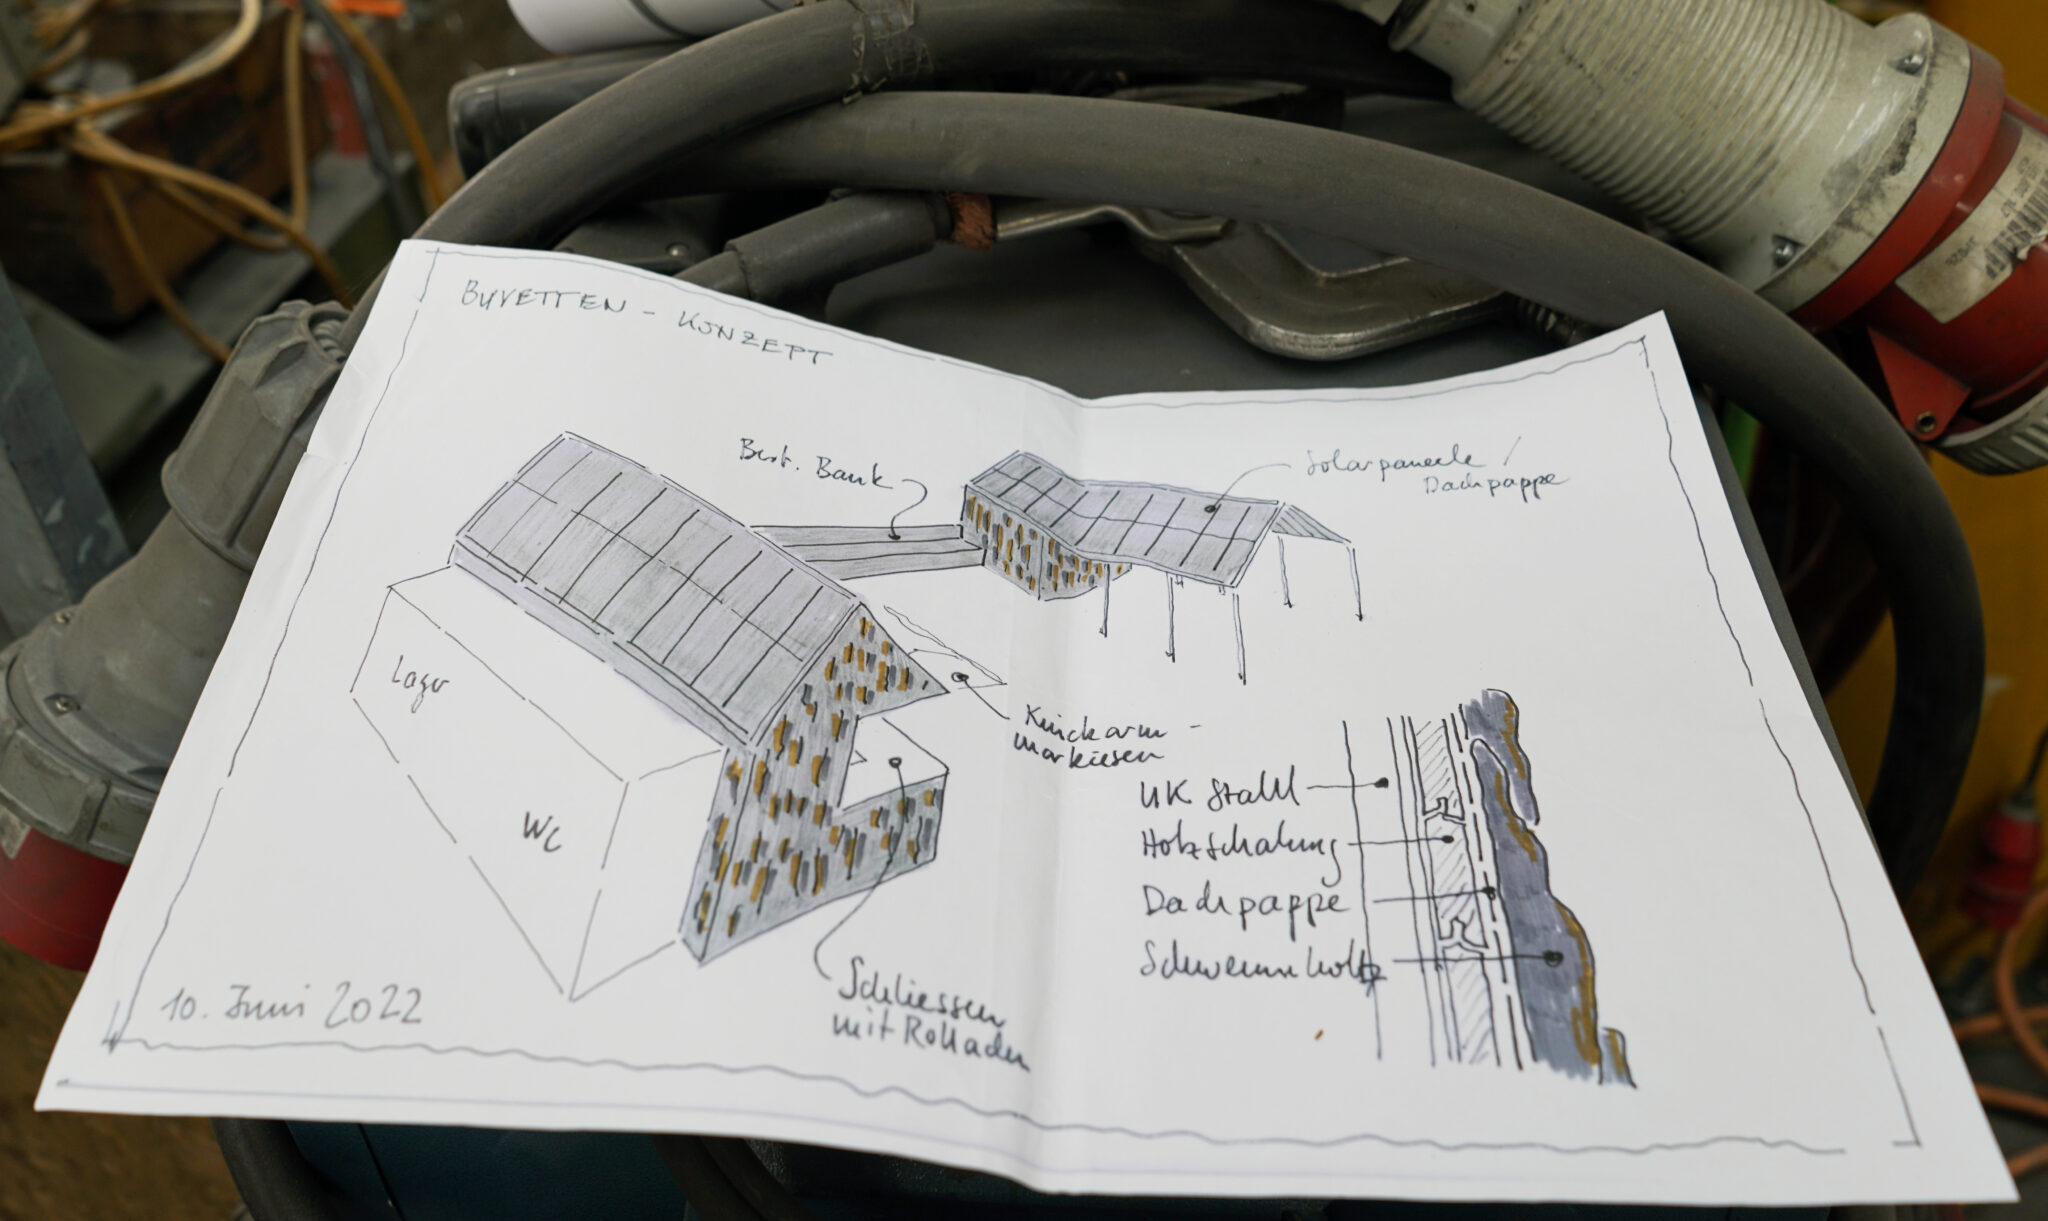 BUVETTEN - KONZEPT
Best. Bank
Solarpaneele /
Dachpappe
Lager
WC
Knickarm-
markiesen
UK Stahl
Holzschalung
Dachpappe
Schwemmholz
Schliessen
mit Rolladen
10. Juni 2022